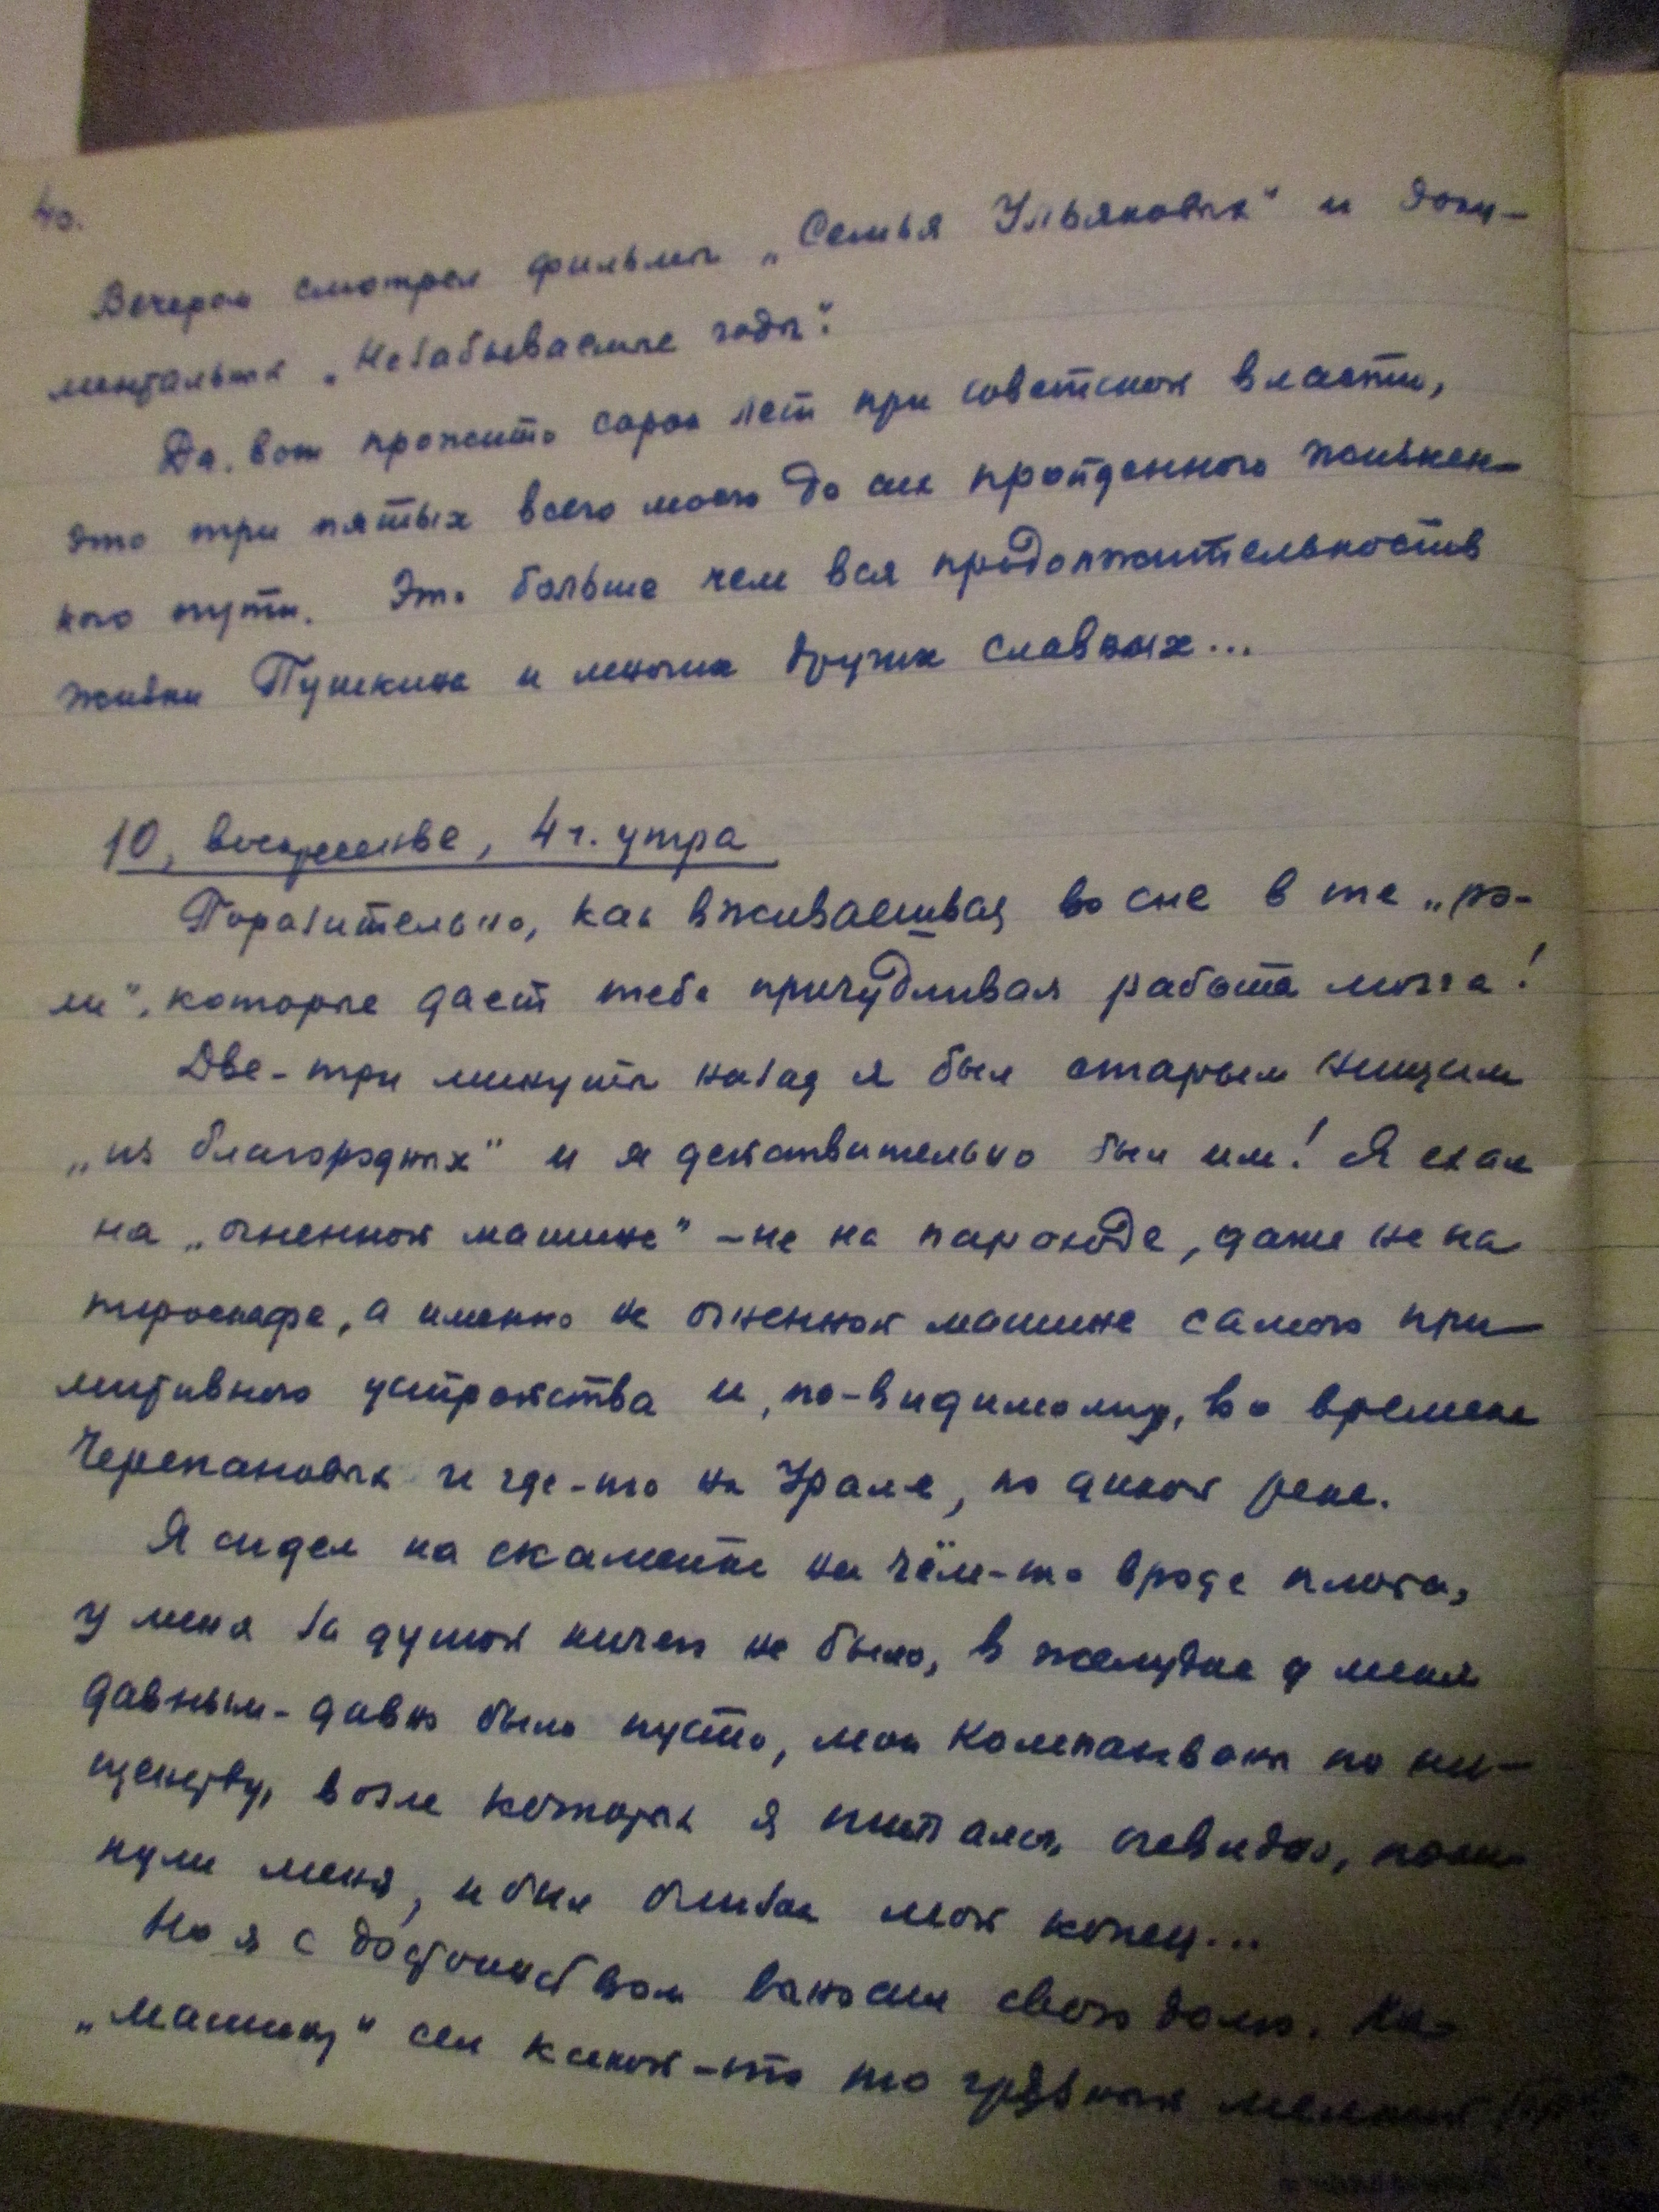 40.
Вечером смотрел фильмы „Семья Ульяновых“ и доку-
ментальный „Незабываемые годы“.
Да, вот прожито сорок лет при советской власти,
это три пятых всего моего до сих пройденного жизнен-
ного пути. Это больше чем вся продолжительность
жизни Пушкина и многих других славных...
10, воскресенье, 4 ч. утра
Поразительно, как вживаешься во сне в те „ро-
ли“, которые дает тебе причудливая работа мозга!
Две-три минуты назад я был старым нищим
„из благородных“ и я действительно был им! Я ехал
на „огненной машине“ – не на пароходе, даже не на
пироскафе, а именно на огненной машине самого при-
митивного устройства и, по-видимому, во времена
Черепановых и где-то на Урале, по дикой реке.
Я сидел на скамейке на чём-то вроде плота,
у меня за душой ничего не было, в желудке у меня
давным-давно было пусто, мои компаньоны по ни-
щенству, возле которых я питался, очевидно, поки-
нули меня, и был близок мой конец...
Но я с достоинством выносил свою долю. На
„машину“ сел какой-то то грязный